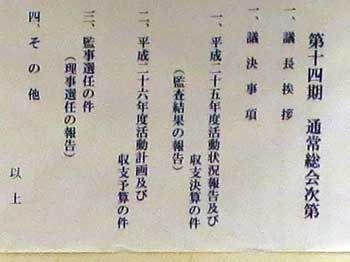 第十四期 通常総会次第
一、議長挨拶
一、議決事項
一、平成二十五年度活動状況報告及び
収支決算の件
（監査結果の報告）
二、平成二十六年度活動計画及び
収支予算の件
三、監事選任の件
（理事選任の報告）
四、その他
以上